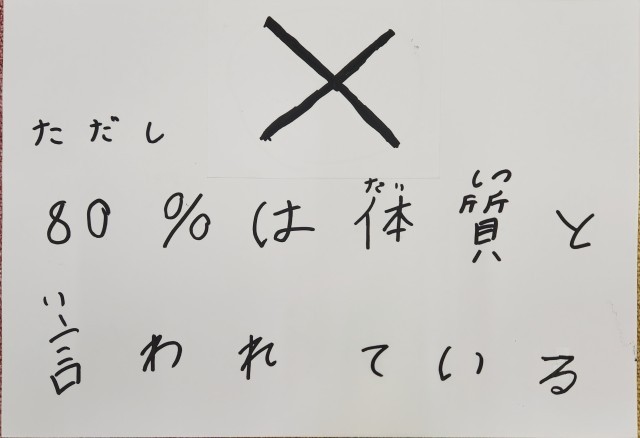 ×
ただし
80%は体質と
言われている